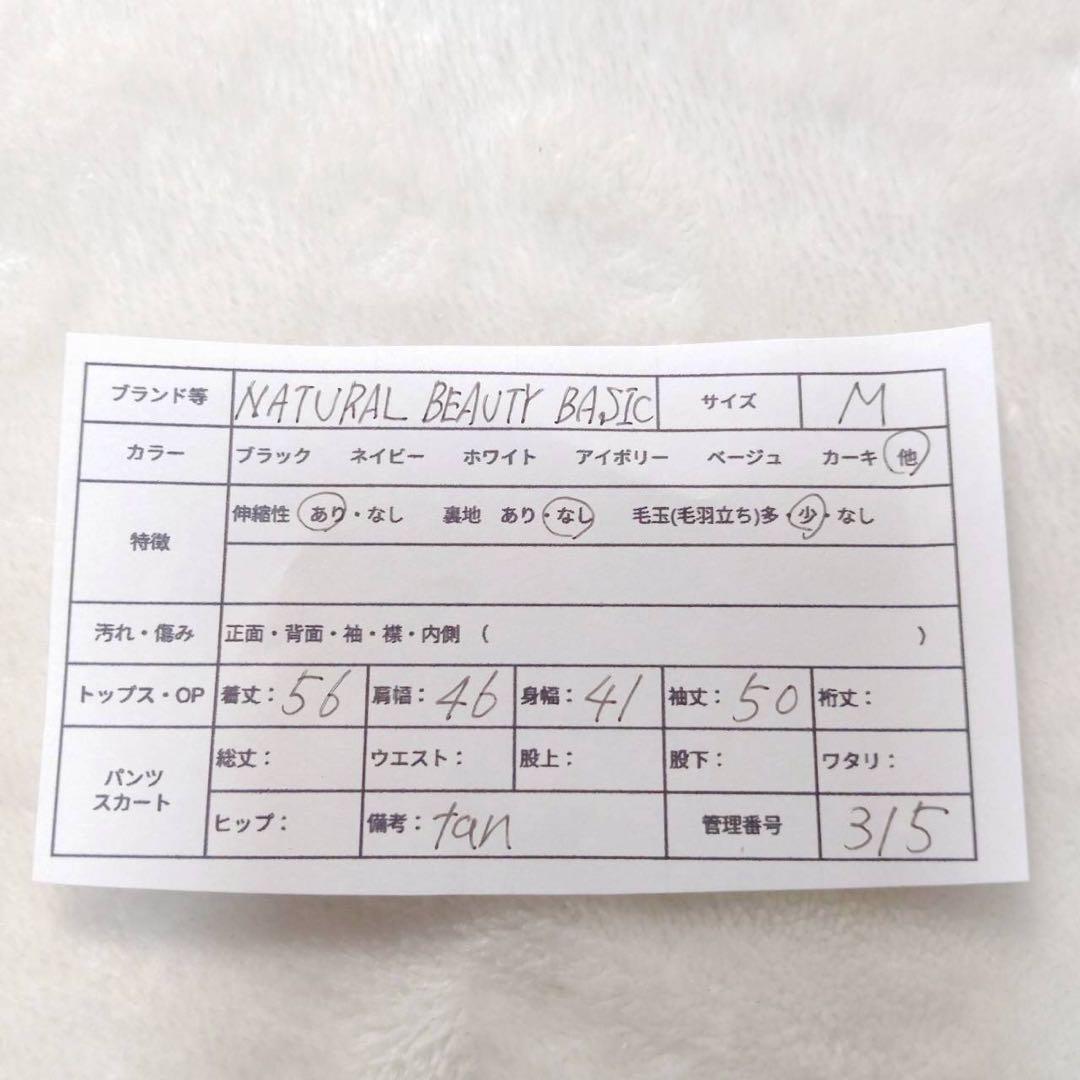 ブランド等 NATURAL BEAUTY BASIC サイズ M
カラー ブラック ネイビー ホワイト アイボリー ベージュ カーキ 他
特徴 伸縮性 あり・なし 裏地 あり・なし 毛玉(毛羽立ち)多・少・なし
汚れ・傷み 正面・背面・袖・襟・内側 ( )
トップス・OP 着丈：56 肩幅：46 身幅：41 袖丈：50 裄丈：
パンツ スカート 総丈： ウエスト： 股上： 股下： ワタリ：
ヒップ： 備考：tan 管理番号 315